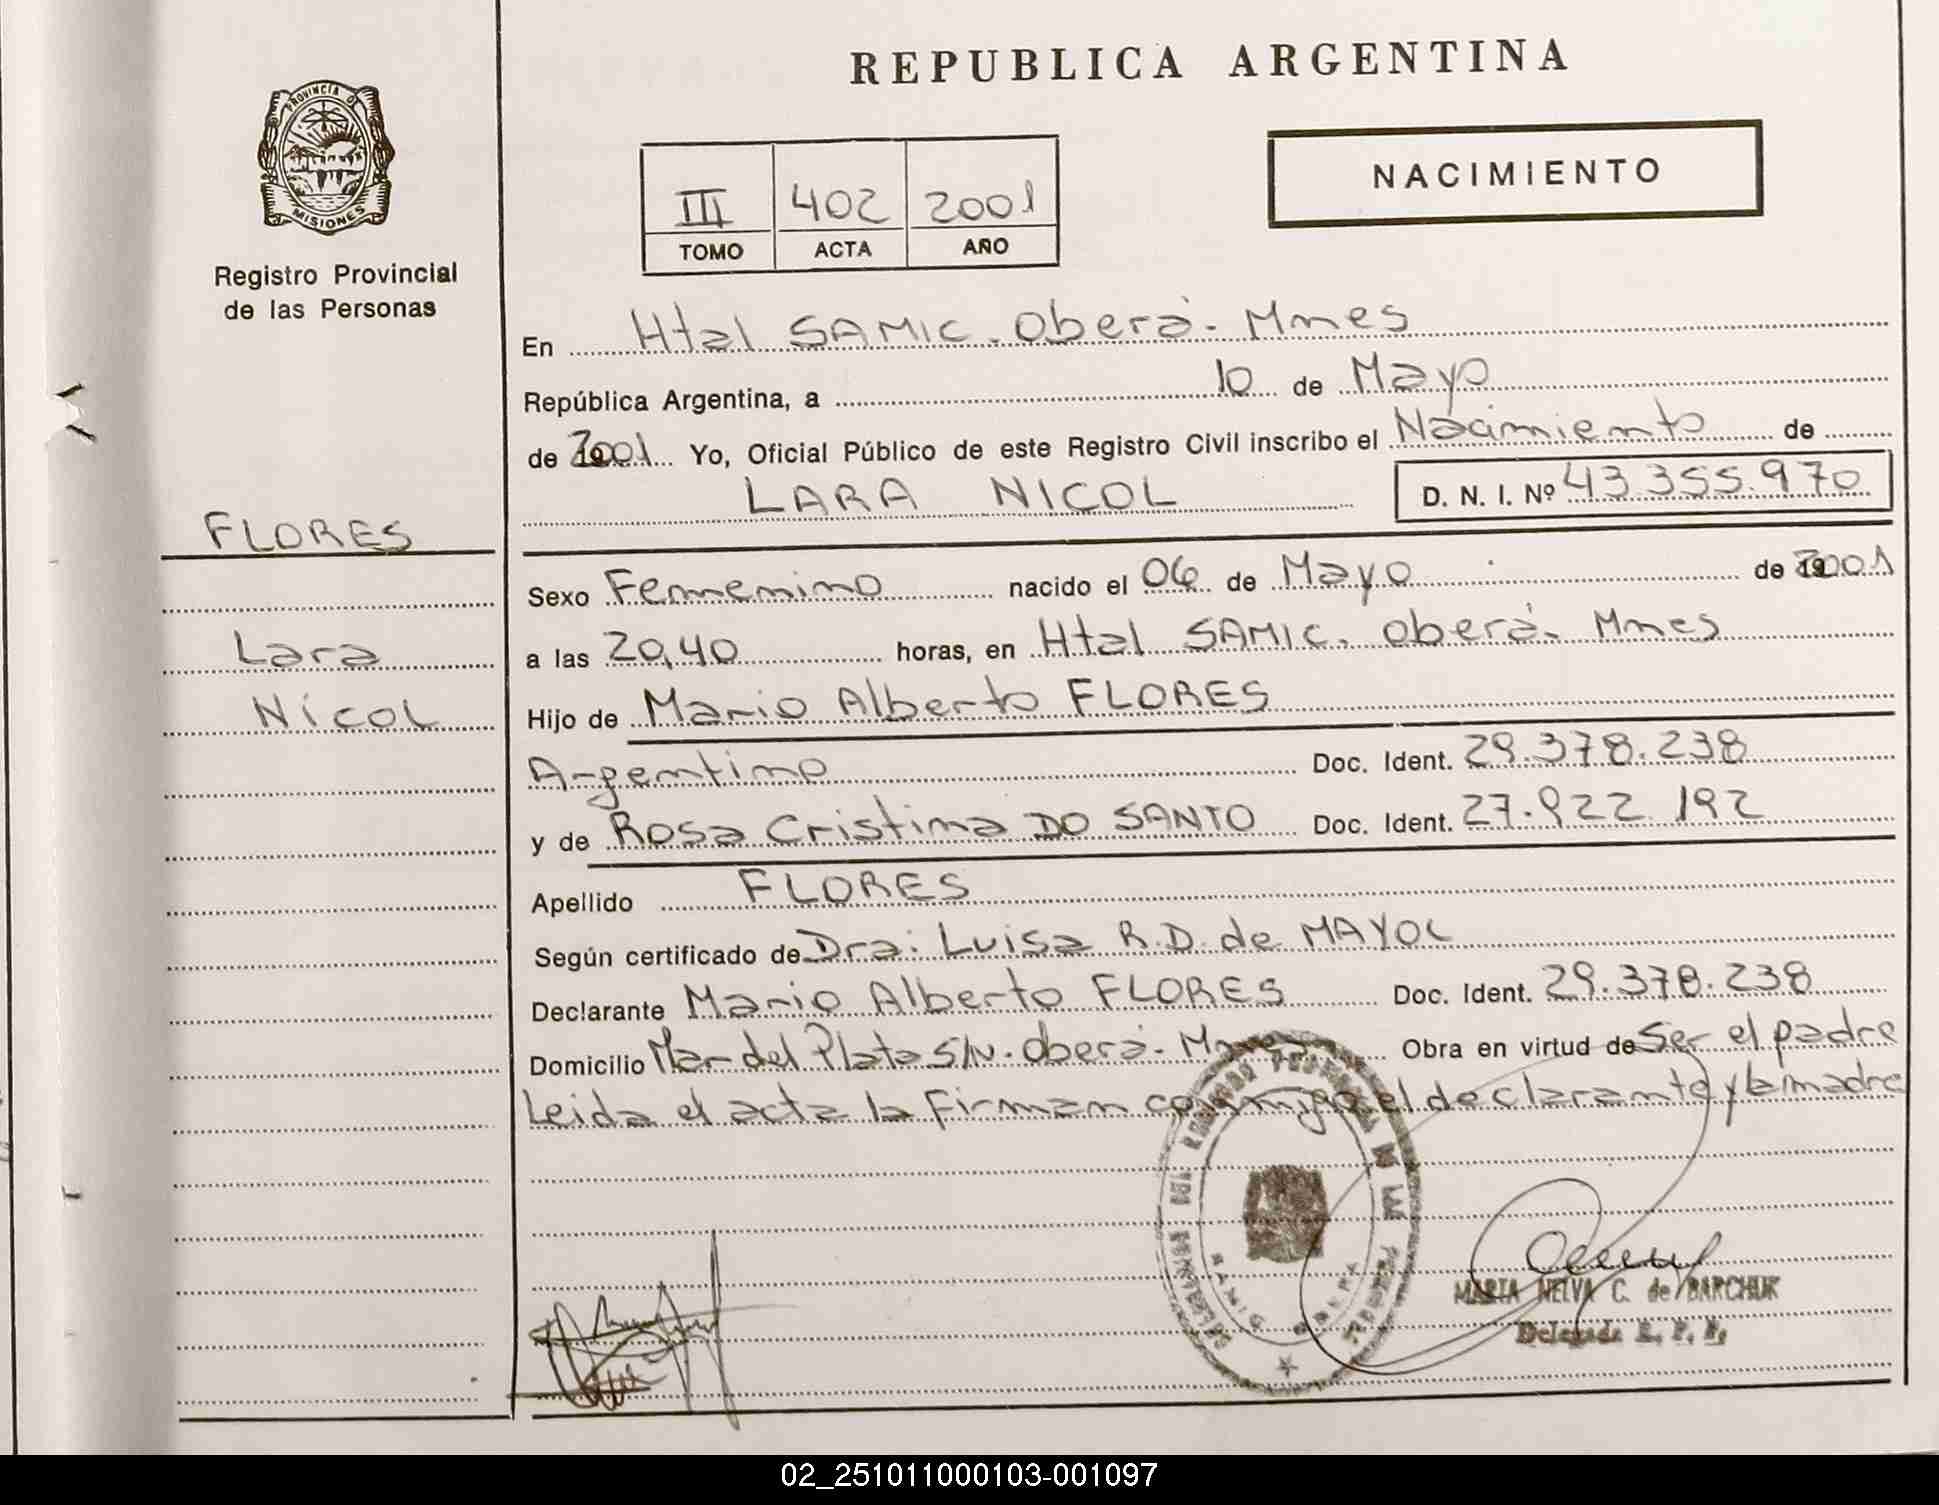 REPUBLICA ARGENTINA
PROVINCIA DE
MISIONES
Registro Provincial
de las Personas
III 402 2001
TOMO ACTA AÑO
NACIMIENTO
En Htal SAMIC. Oberá. Mnes
República Argentina, a 10 de Mayo
de 2001 Yo, Oficial Público de este Registro Civil inscribo el Nacimiento de
LARA NICOL D. N. I. Nº 43.355.970
FLORES
Lara
Nicol
Sexo Femenino nacido el 06 de Mayo de 2001
a las 20,40 horas, en Htal SAMIC. Oberá. Mnes
Hijo de Mario Alberto FLORES
Argentino Doc. Ident. 29.378.238
y de Rosa Cristina DO SANTO Doc. Ident. 27.922.192
Apellido FLORES
Según certificado de Dra: Luisa R.D. de MAYOL
Declarante Mario Alberto FLORES Doc. Ident. 29.378.238
Domicilio Mar del Plata S/N. Oberá. Obra en virtud de Ser el padre
Leida el acta la firman conmigo el declarante y la madre
MARIA NELVA C. de BARCHUK
Delegada R. P. P.
02_251011000103-001097